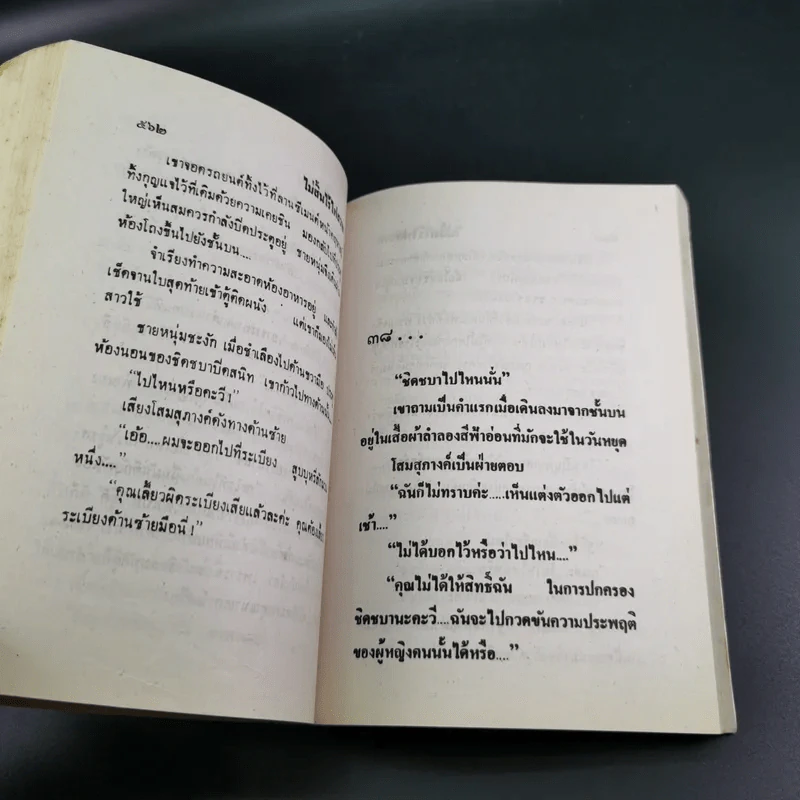 ๕๖๒
เขาจอดรถยนต์ทิ้งไว้ที่ลานซีเมนต์
ทิ้งกุญแจไว้ที่เดิมด้วยความเคยชิน มองกลับไป
ใหญ่เห็นสมควรกำลังปิดประตูอยู่ ชายหนุ่มจึงเดิน
ห้องโถงขึ้นไปยังชั้นบน....
จำเรียงทำความสะอาดห้องอาหารอยู่
เช็ดจานใบสุดท้ายเข้าตู้ติดผนัง แต่เขาก็
สาวใช้
ชายหนุ่มชะงัก เมื่อชำเลืองไปด้านขวามือ
ห้องนอนของชิดชบาปิดสนิท เขาก้าวไปทางด้าน
“ไปไหนหรือคะวี!”
เสียงโสมสุภางค์ดังทางด้านซ้าย
“เอ้อ....ผมจะออกไปที่ระเบียง สูบบุหรี่สัก
หนึ่ง....”
“คุณเลี้ยวผิดระเบียงเสียแล้วละค่ะ คุณต้อง
ระเบียงด้านซ้ายมือนี่!”
๓๘...
“ชิดชบาไปไหนนั่น”
เขาถามเป็นคำแรกเมื่อเดินลงมาจากชั้นบน
อยู่ในเสื้อผ้าลำลองสีฟ้าอ่อนที่มักจะใช้ในวันหยุด
โสมสุภางค์เป็นฝ่ายตอบ
“ฉันก็ไม่ทราบค่ะ.....เห็นแต่งตัวออกไปแต่
เช้า....”
“ไม่ได้บอกไว้หรือว่าไปไหน....”
“คุณไม่ได้ให้สิทธิ์ฉัน ในการปกครอง
ชิดชบานะคะวี....ฉันจะไปกวดขันความประพฤติ
ของผู้หญิงคนนั้นได้หรือ....”